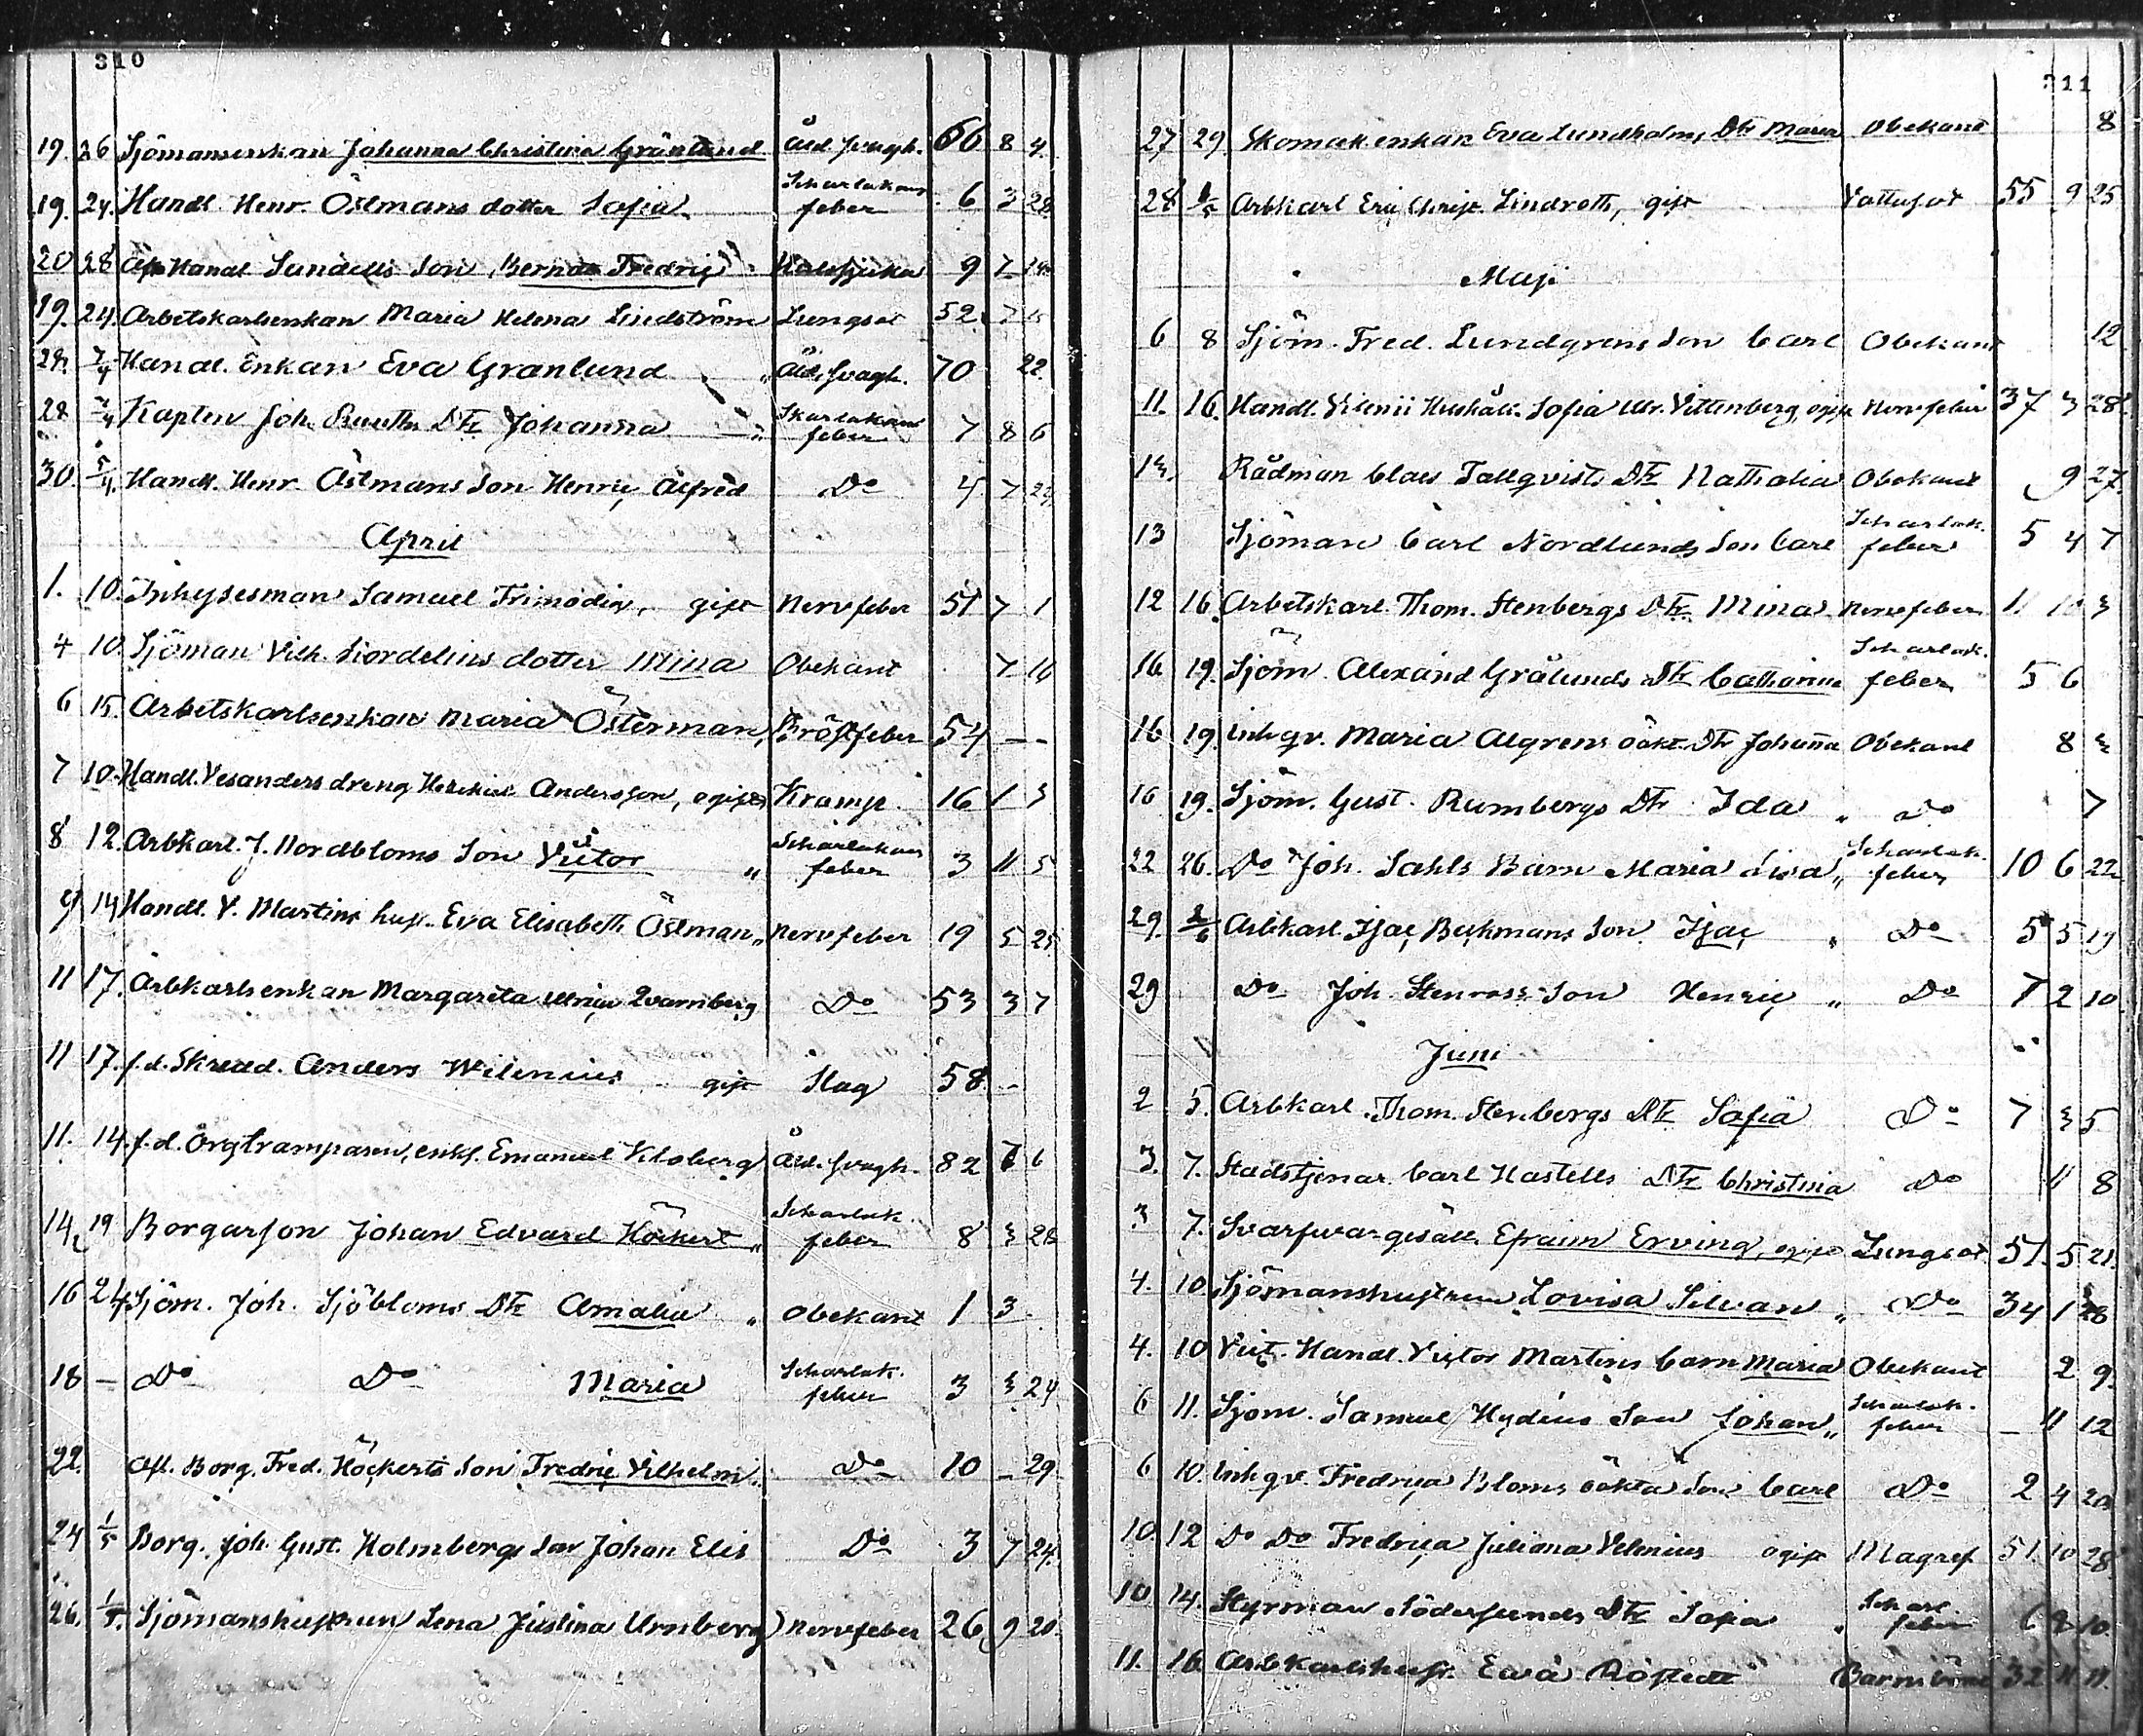 310
19. 26 Sjömansenkan Johanna Christina Grönlund Åld. svagh. 66 8 4.
19. 24. Handl. Henr. Östmans dotter Sofia. Scharlakans feber 6 3 28
20 28 Handl Sundells Son, Fredric Halssjuka 9 7
19. 24. Arbetskarlsenkan Maria Helena Lindström Lungsot 52. 7
28. 2/4 Handl. Enkan Eva Granlund Åld. svagh. 70 22.
28 2/4 Kapten Joh. Dtr Johanna Skarlakans feber 7 8 6
30. 5/4. Handl. Henr. Östmans Son Henric Alfred Do 4 7
April
1. 10. Inhysesman Samuel Frimodig, gift Nervfeber 51 7 1
4 10. Sjöman Vilh. Nordelius dotter Mina Obekant 7 16
6 15. Arbetskarlsenkan Maria Österman, Bröstfeber 54 — —
7 10. Handl. Vesanders dreng Andersson, ogift Kramp. 16 1 3
8 12. Arbkarl. J. Nordbloms Son Victor " Scharlakans feber 3 11 5
9 14 Handl. V. Martins hust. Eva Elisabeth Östman " Nervfeber 19 5 25
11 17. Arbkarlsenkan Margareta Ulrica Qvarnberg Do 53 3 7
11 17. f.d. Skredd. Anders Wilenius gift Slag 58. -
11. 14. f.d. Orgtramparen, enkl. Emanuel Åld. svagh. 82 6
14 19 Borgarson Johan Edvard Höckert " Scharlak. feber 8 3 28
16 24 Sjöm. Joh. Sjöbloms Dtr Amalia " Obekant 1 3
18 — Do Do Maria Scharlak. feber 3 3 24
22. Afl. Borg. Fred. Höckerts Son Fredric Vilhelm Do 10 - 29.
24 1/5 Borg. Joh. Gust. Holmbergs Son Johan Elis Do 3 7 24.
26. 1/5. Sjömanshustrun Lena Justina Urnberg Nervfeber 26 9 20.
311
27 29. Skomak. enkan Eva Lundholms Dtr Maria Obekant 8
28 1/5 Arbkarl Eric Christ. Lindroth, gift Vattusot 55 9 25
Maji
6 8 Sjöm. Fred. Lundgrens Son Carl Obekant 12
11. 16. Handl. Vilenii Hushåll. Sofia Ulr. Vittenberg, ogift Nervfeber 37 3 28
13. Rådman Claes Tallqvists Dtr Nathalia Obekant 9 27.
13 Sjöman Carl Nordlunds Son Carl Scharlak. feber 5 4 7
12 16. Arbetskarl. Thom. Stenbergs Dtr Mina Nervfeber 11 10 3
16 19. Sjöm. Alexand Grålunds Dtr Catharina Scharlak. feber 5 6
16 19. Inhqv. Maria Algrens oäkt. Dtr Johanna Obekant 8 3
16 19. Sjöm. Gust. Rumbergs Dtr Ida " Do 7
22 26. Do Joh. Sahls Barn Maria Lisa " Scharlak. feber 10 6 22
29. 2/6 Arbkarl Isac Beckmans Son Isac " Do 5 5 19
29 Do Joh. Stenroos Son Henric " Do 7 2 10
Juni
2 5. Arbkarl. Thom. Stenbergs Dtr Sofia Do 7 3 5
3. 7. Stadstjenar. Carl Hastells Dtr Christina Do 11 8
3 7. Svarfvaregesäll. Efraim Erving, ogift Lungsot 51. 5 21.
4. 10. Sjömanshustrun Lovisa Silvan " Do 34 1 28
4. 10 Vict. Handl. Victor Martins barn Maria Obekant 2 9.
6 11. Sjöm. Samuel Hydéns Son Johan " Scharlak. feber — 11 12
6 10. Inhqv. Fredrica Bloms oäkta Son Carl Do 2 4 20
10. 12 Do Do Fredrica Juliana Vilenius ogift Magref 51. 10 28
10. 14. Styrman Södersunds Dtr Sofia " Scharl. feber 6 2 10.
11. 16 Arbkarlshustr. Eva 32 11 11.